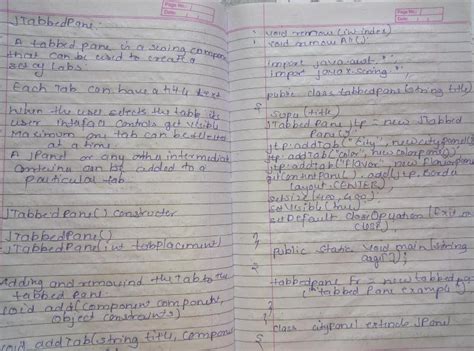 JTabbedPane:
A tabbed pane is a swing compone
that can be used to create a
set of tabs.
Each tab can have a title text
When the user selects the tabbe its
user interface controls get visible
Maximum one tab can be selected
at a time.
A JPanel or any other intermediat
container can be added to a
particular tab.
JTabbedPane() constructor
JTabbedPane()
JTabbedPane(int tabplacement)
Adding and removind the tab to the
tabbed pane
void add(Component component,
Object constraints)
void addTab(String title, Component
Page No.:
Date:
void remove(int index)
void removeAll();
import java.awt.*;
import javax.swing.*;
public class tabbedpane(string title)
{
super(title)
JTabbedPane jtp = new JTabbed
Pane();
jtp.addTab("city", new citypanel()
jtp.addTab("color", new colorpanel());
jtp.addTab("flavor", new flavorpane
getContentPane().add(jtp, Border
Layout.CENTER);
setSize(400, 400);
setVisible(true);
setDefault CloseOperation(Exit on
close);
}
public static void main(string
args[]);
{
tabbedpane fr = new tabbedpa
("tabbed Pane example");
}
class citypanel extends JPanel
{